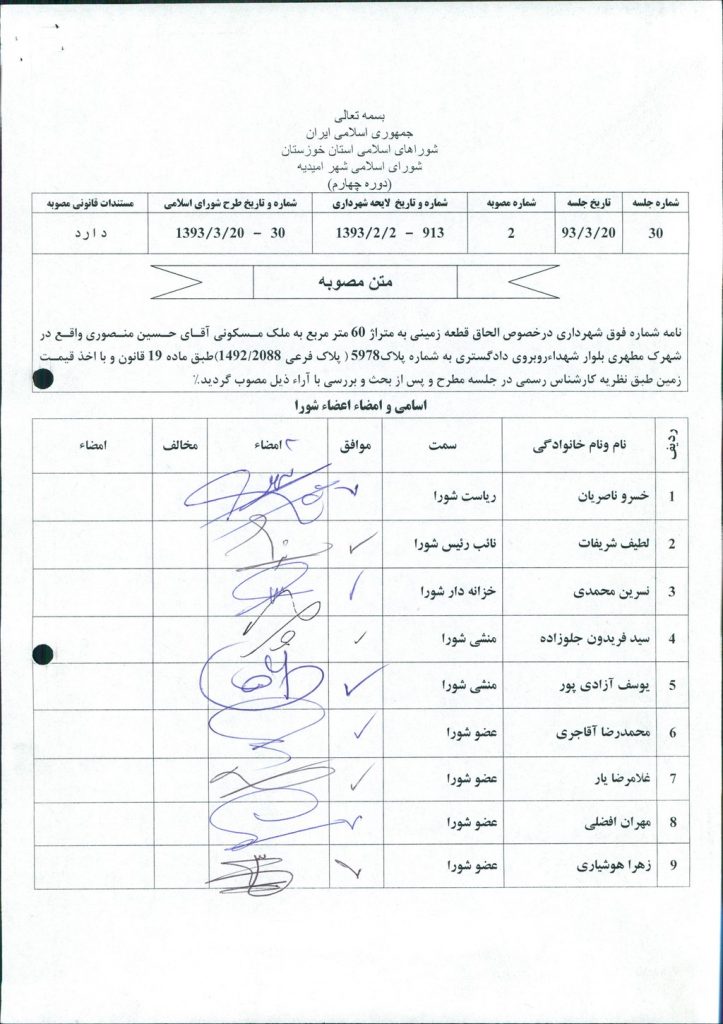 بسمه تعالی
جمهوری اسلامی ایران
شوراهای اسلامی استان خوزستان
شورای اسلامی شهر امیدیه
(دوره چهارم)
شماره جلسه تاریخ جلسه شماره مصوبه شماره و تاریخ لایحه شهرداری شماره و تاریخ طرح شورای اسلامی مستندات قانونی مصوبه
30 93/3/20 2 913 - 1393/2/2 30 - 1393/3/20 دارد
متن مصوبه
نامه شماره فوق شهرداری درخصوص الحاق قطعه زمینی به متراژ 60 متر مربع به ملک مسکونی آقای حسین منصوری واقع در
شهرک مطهری بلوار شهداءروبروی دادگستری به شماره پلاک5978 ( پلاک فرعی 1492/2088)طبق ماده 19 قانون و با اخذ قیمت
زمین طبق نظریه کارشناس رسمی در جلسه مطرح و پس از بحث و بررسی با آراء ذیل مصوب گردید.٪
اسامی و امضاء اعضاء شورا
ردیف نام ونام خانوادگی سمت موافق امضاء مخالف امضاء
1 خسرو ناصریان ریاست شورا
2 لطیف شریفات نائب رئیس شورا
3 نسرین محمدی خزانه دار شورا
4 سید فریدون جلوزاده منشی شورا
5 یوسف آزادی پور منشی شورا
6 محمدرضا آقاجری عضو شورا
7 غلامرضا یار عضو شورا
8 مهران افضلی عضو شورا
9 زهرا هوشیاری عضو شورا